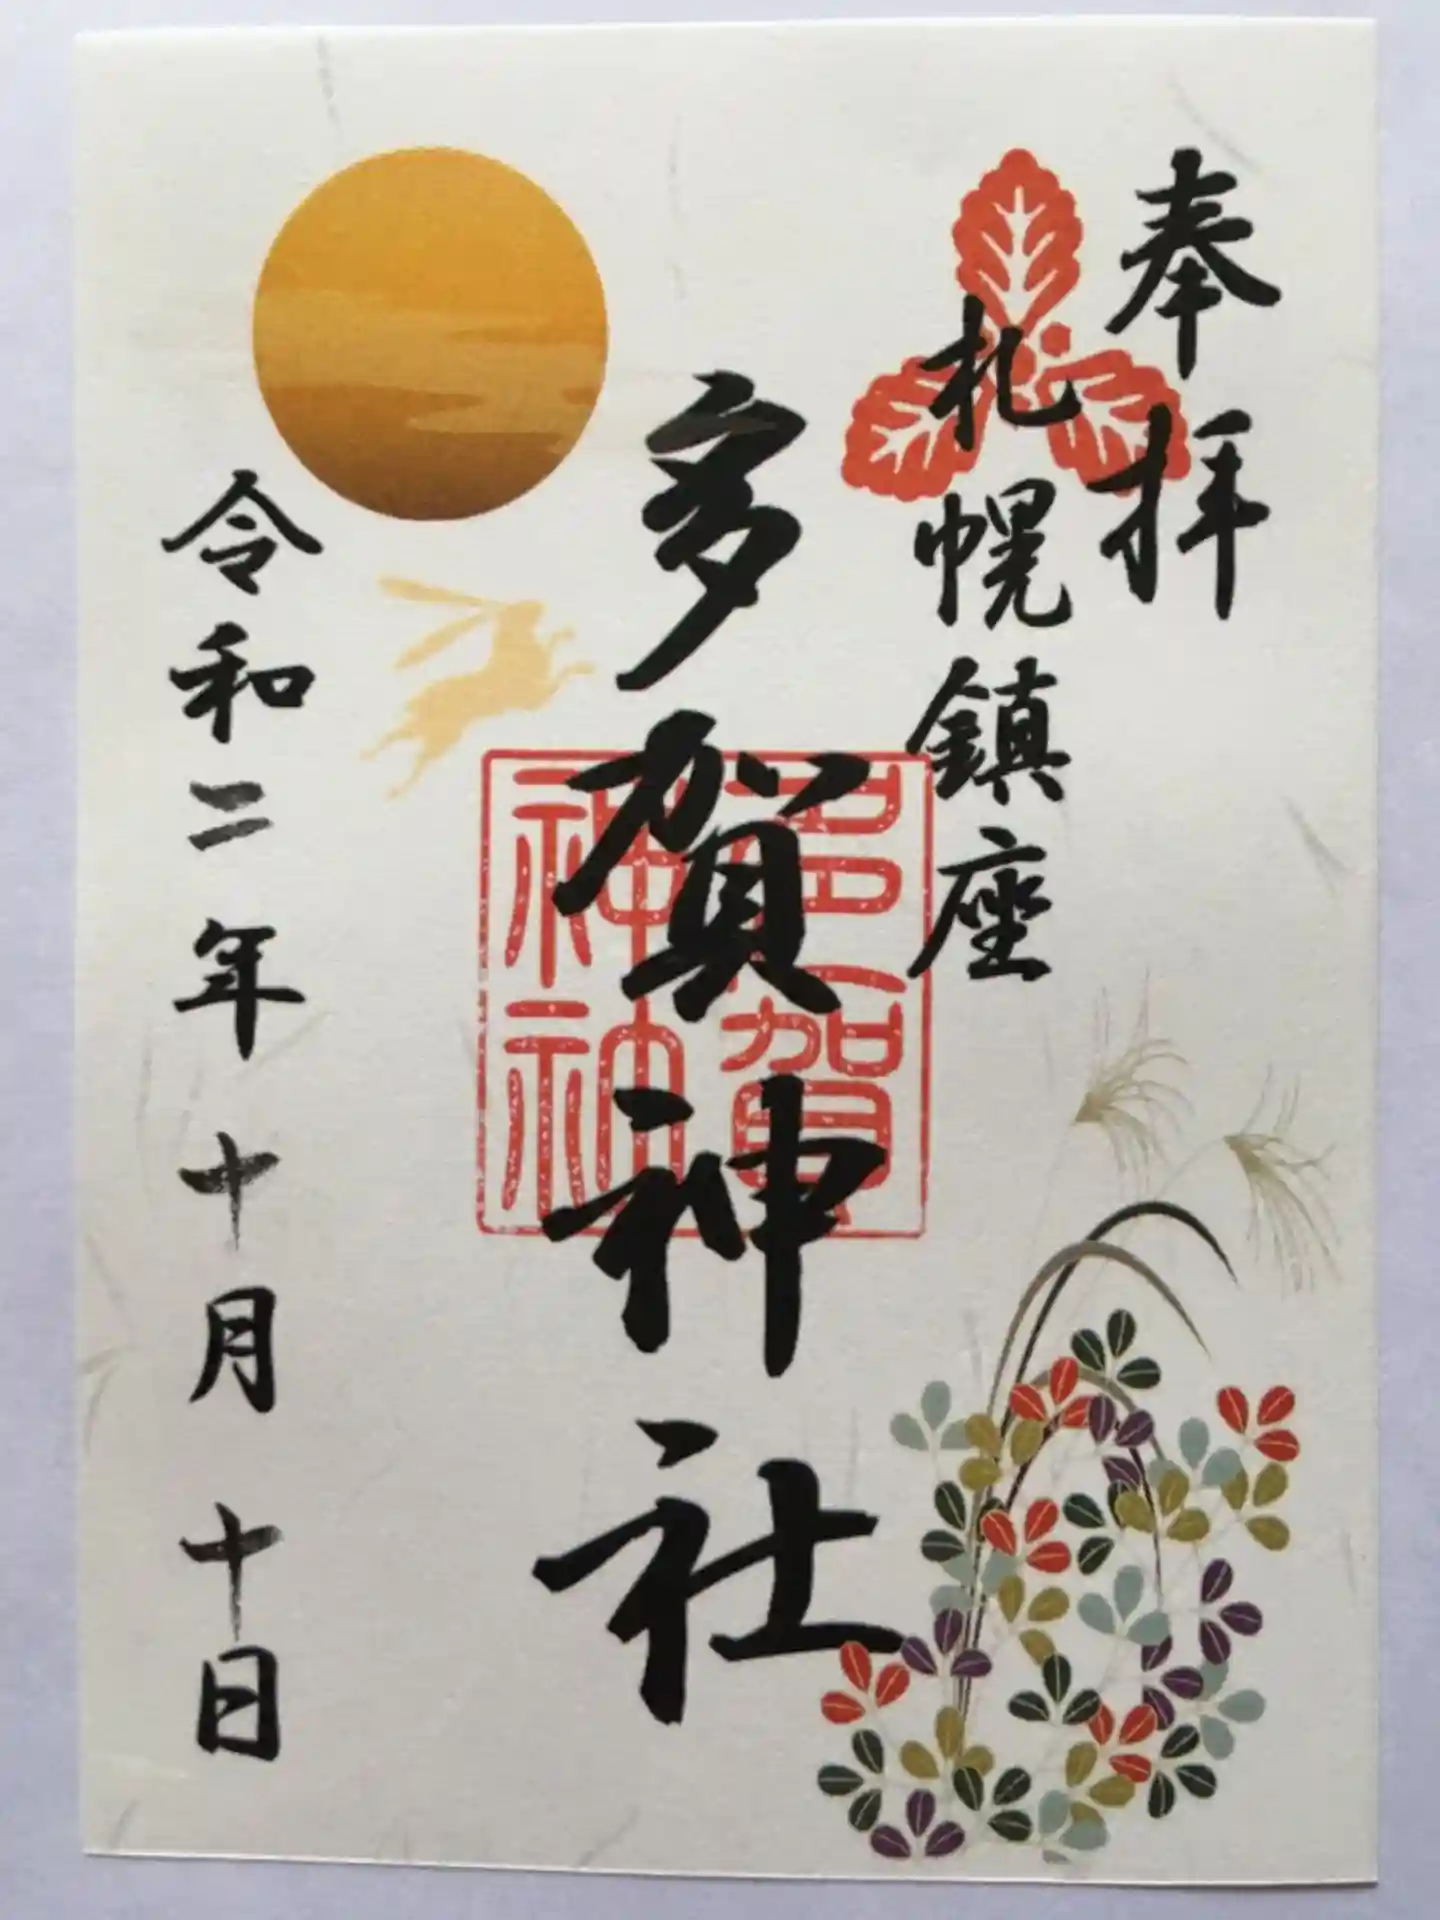 奉拝
札幌鎮座
多賀神社
多賀
神社
令和二年十月十日